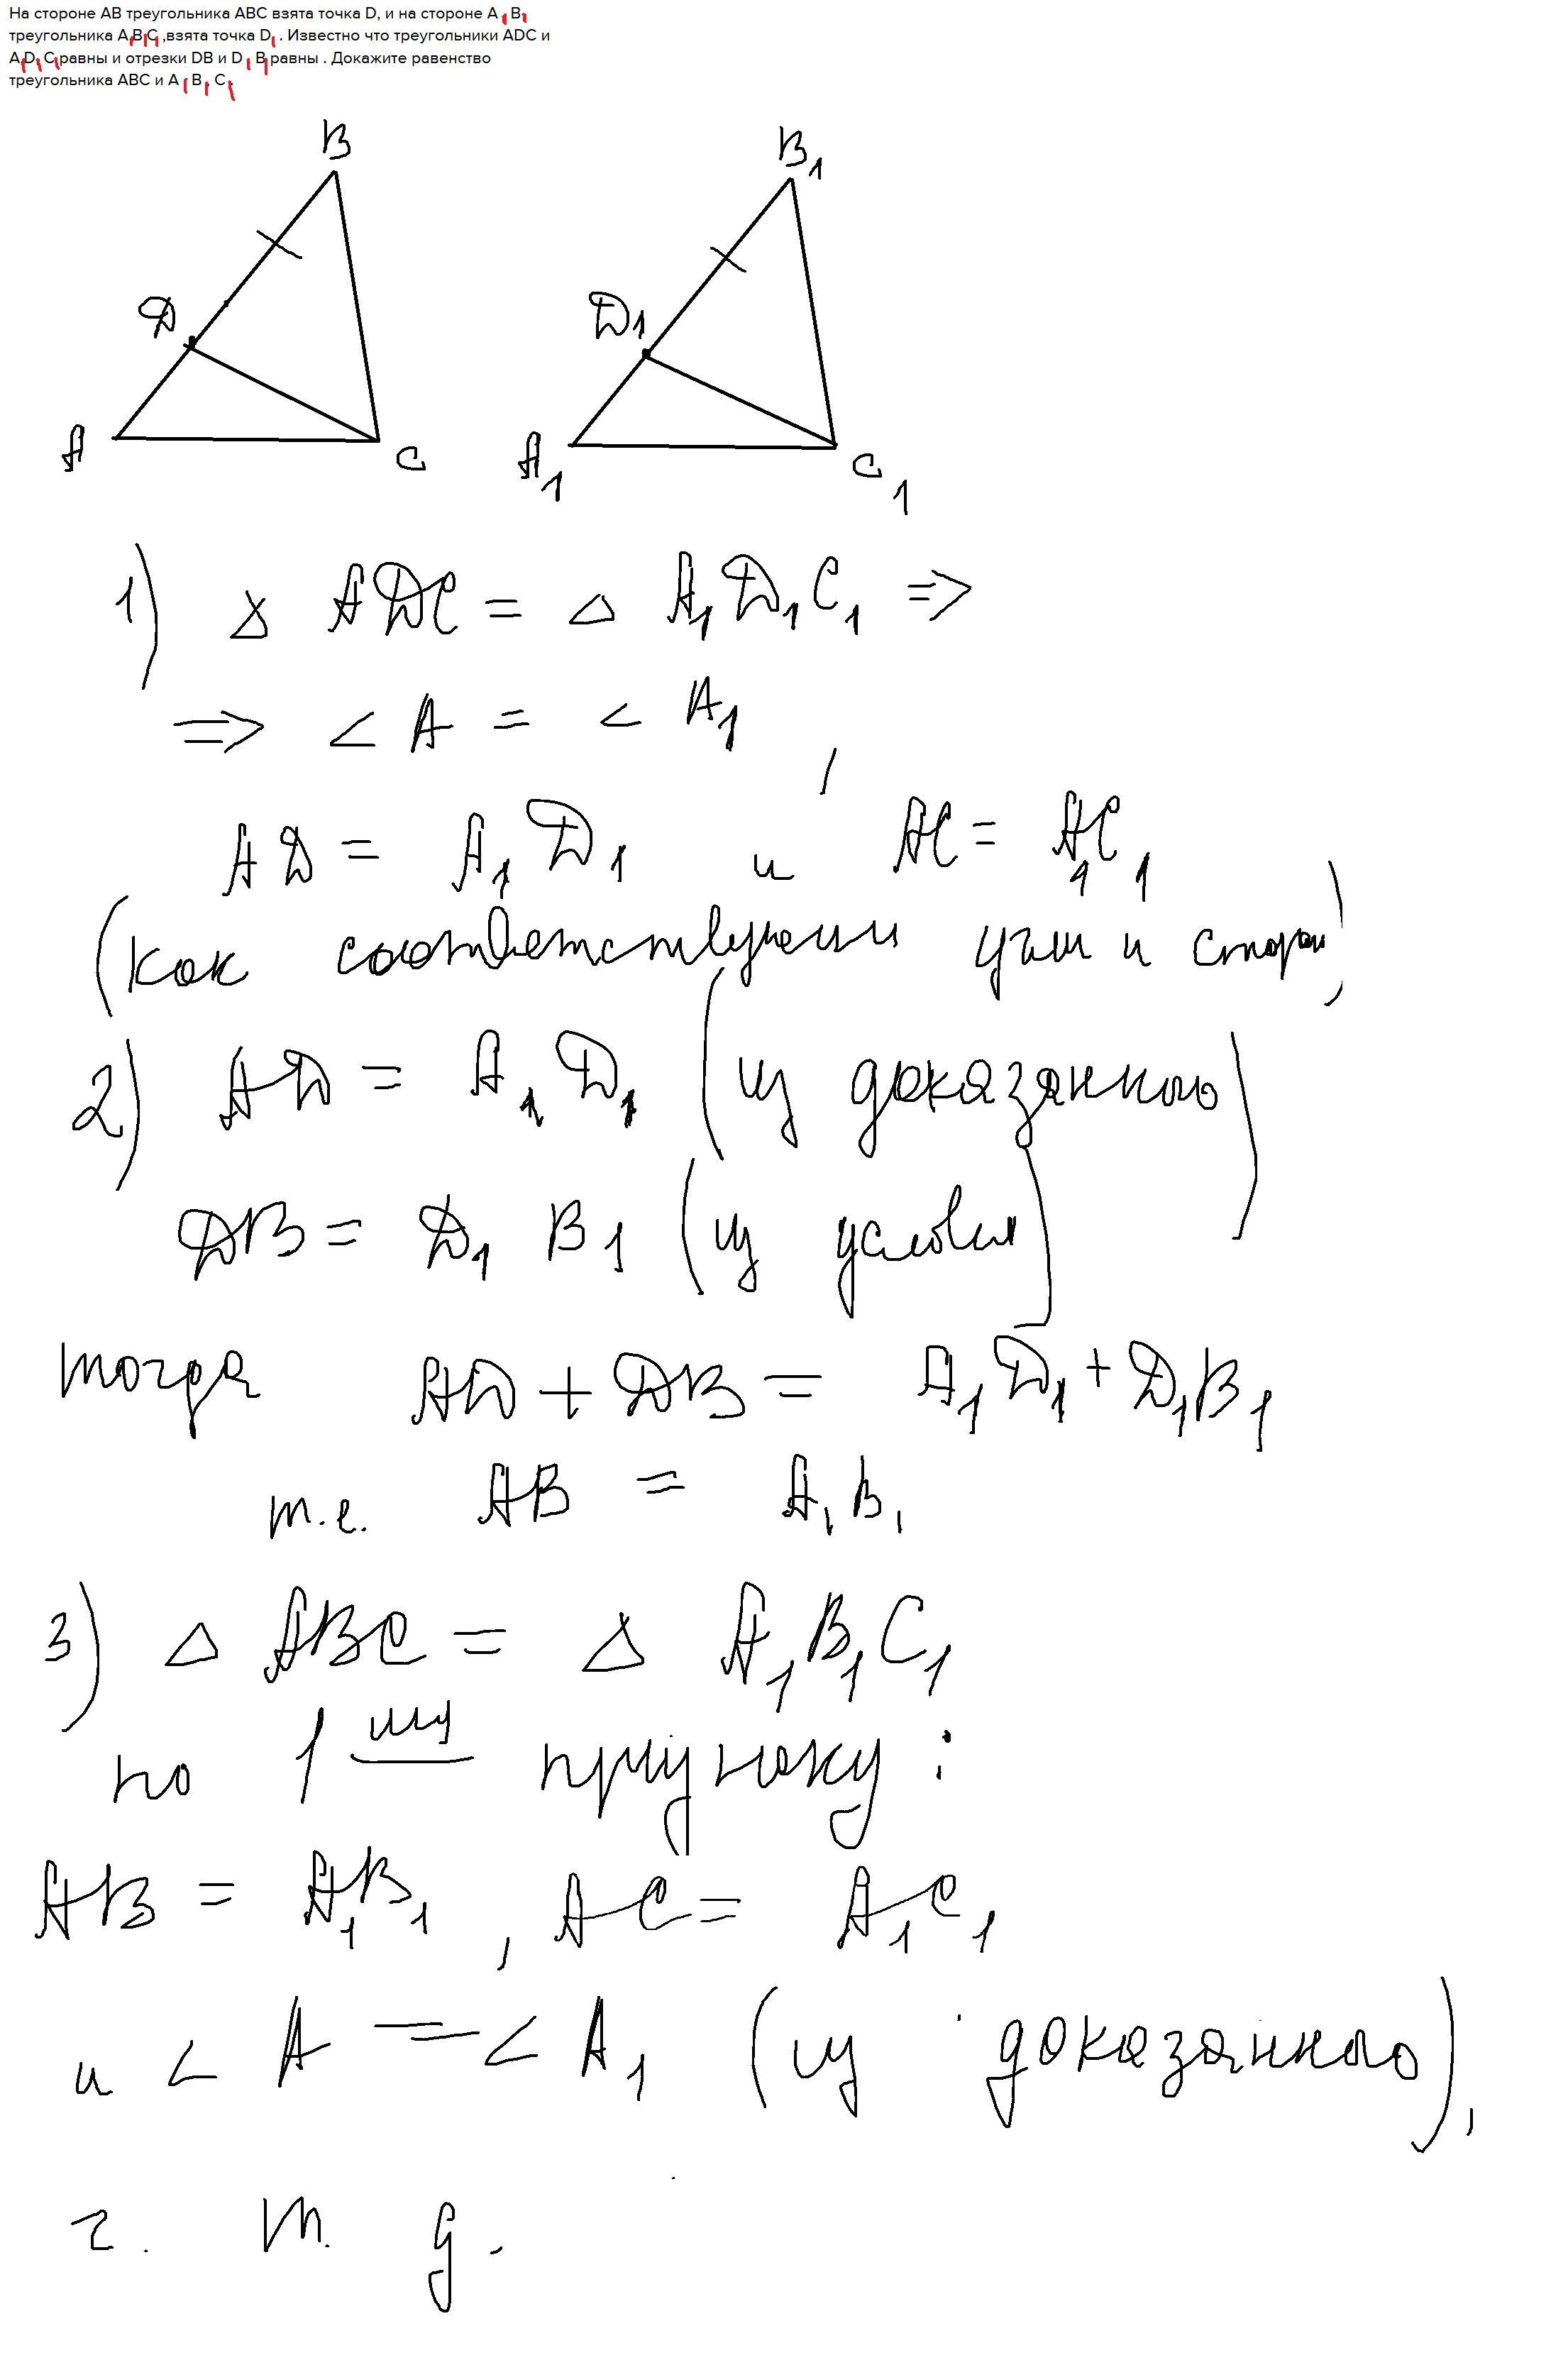 На стороне АВ треугольника АВС взята точка D, и на стороне А₁ В₁
треугольника А₁В₁С₁ ,взята точка D₁ . Известно что треугольники ADC и
A₁D₁ C₁ равны и отрезки DB и D₁ B₁ равны . Докажите равенство
треугольника АВС и А₁ В₁ С₁
B
B₁
D
D₁
A
C
A₁
C₁
1) △ ADC = △ A₁D₁C₁ =>
=> < A = < A₁ ,
AD = A₁D₁ и AC = A₁C₁
(как соответствующ угл и сторон)
2) AD = A₁D₁ (из доказанного)
DB = D₁ B₁ (из условия)
тогда AD + DB = A₁D₁ + D₁B₁
т.е. AB = A₁B₁
3) △ ABC = △ A₁B₁C₁
по 1 му признаку :
AB = A₁B₁ , AC = A₁C₁
и < A = < A₁ (из доказанного),
ч. т. д.